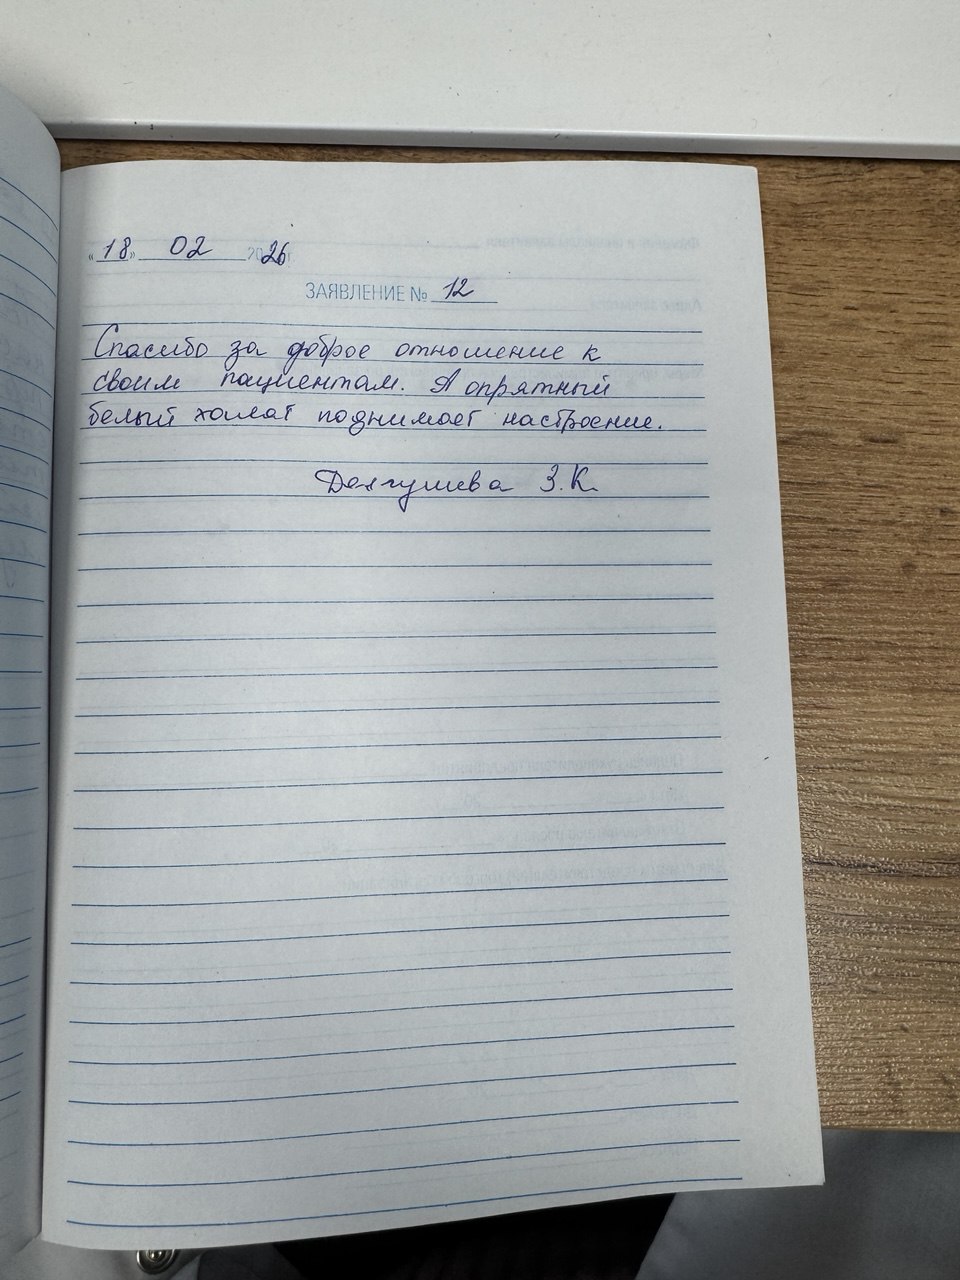 «18» 02 2026 г.
ЗАЯВЛЕНИЕ № 12
Спасибо за доброе отношение к
своим пациентам. А опрятный
белый халат поднимает настроение.
Долгушева З.К.